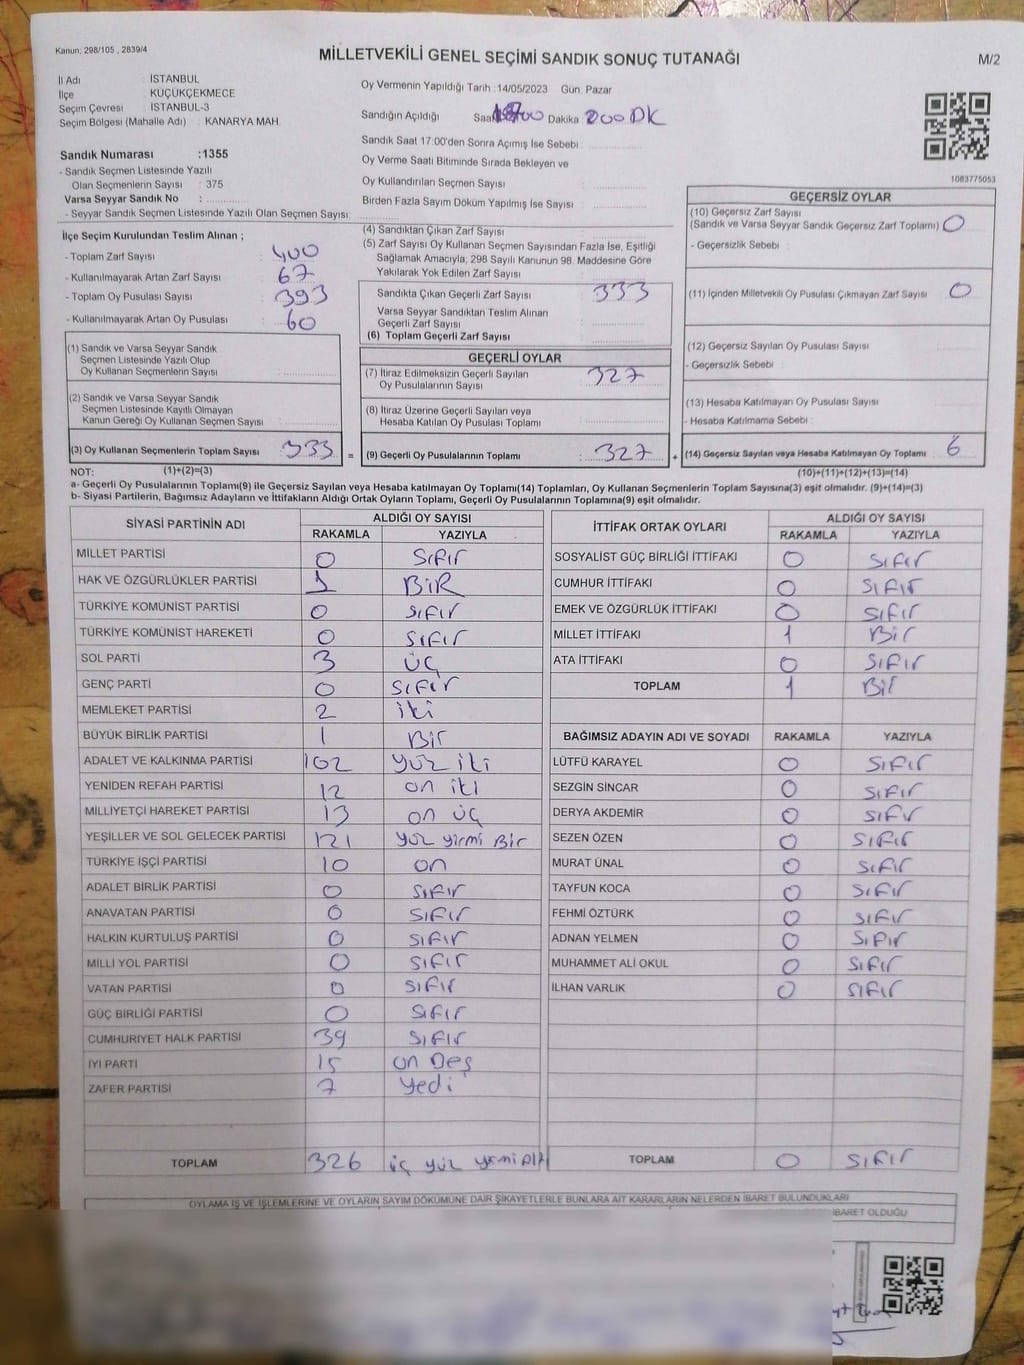 Kanun: 298/105 , 2839/4
MİLLETVEKİLİ GENEL SEÇİMİ SANDIK SONUÇ TUTANAĞI
M/2
İl Adı : İSTANBUL
İlçe : KÜÇÜKÇEKMECE
Seçim Çevresi : İSTANBUL-3
Seçim Bölgesi (Mahalle Adı) : KANARYA MAH.
Oy Vermenin Yapıldığı Tarih :14/05/2023 Gün: Pazar
Sandığın Açıldığı Saat Dakika 200 DK
Sandık Saat 17:00'den Sonra Açılmış İse Sebebi :
Oy Verme Saati Bitiminde Sırada Bekleyen ve
Oy Kullandırılan Seçmen Sayısı :
Birden Fazla Sayım Döküm Yapılmış İse Sayısı :
1083775053
Sandık Numarası :1355
- Sandık Seçmen Listesinde Yazılı
Olan Seçmenlerin Sayısı : 375
Varsa Seyyar Sandık No :
- Seyyar Sandık Seçmen Listesinde Yazılı Olan Seçmen Sayısı:
İlçe Seçim Kurulundan Teslim Alınan ;
- Toplam Zarf Sayısı : 400
- Kullanılmayarak Artan Zarf Sayısı : 67
- Toplam Oy Pusulası Sayısı : 393
- Kullanılmayarak Artan Oy Pusulası : 60
(1) Sandık ve Varsa Seyyar Sandık
Seçmen Listesinde Yazılı Olup
Oy Kullanan Seçmenlerin Sayısı :
(2) Sandık ve Varsa Seyyar Sandık
Seçmen Listesinde Kayıtlı Olmayan
Kanun Gereği Oy Kullanan Seçmen Sayısı :
(3) Oy Kullanan Seçmenlerin Toplam Sayısı : 333 =
(4) Sandıktan Çıkan Zarf Sayısı :
(5) Zarf Sayısı Oy Kullanan Seçmen Sayısından Fazla İse, Eşitliği
Sağlamak Amacıyla, 298 Sayılı Kanunun 98. Maddesine Göre
Yakılarak Yok Edilen Zarf Sayısı :
Sandıkta Çıkan Geçerli Zarf Sayısı : 333
Varsa Seyyar Sandıktan Teslim Alınan
Geçerli Zarf Sayısı :
(6) Toplam Geçerli Zarf Sayısı :
GEÇERLİ OYLAR
(7) İtiraz Edilmeksizin Geçerli Sayılan
Oy Pusulalarının Sayısı : 327
(8) İtiraz Üzerine Geçerli Sayılan veya
Hesaba Katılan Oy Pusulası Toplamı :
(9) Geçerli Oy Pusulalarının Toplamı : 327 +
GEÇERSİZ OYLAR
(10) Geçersiz Zarf Sayısı
(Sandık ve Varsa Seyyar Sandık Geçersiz Zarf Toplamı) : 0
- Geçersizlik Sebebi :
(11) İçinden Milletvekili Oy Pusulası Çıkmayan Zarf Sayısı : 0
(12) Geçersiz Sayılan Oy Pusulası Sayısı :
- Geçersizlik Sebebi :
(13) Hesaba Katılmayan Oy Pusulası Sayısı :
- Hesaba Katılmama Sebebi :
(14) Geçersiz Sayılan veya Hesaba Katılmayan Oy Toplamı : 6
NOT: (1)+(2)=(3) (10)+(11)+(12)+(13)=(14)
a- Geçerli Oy Pusulalarının Toplamı(9) ile Geçersiz Sayılan veya Hesaba Katılmayan Oy Toplamı(14) Toplamları, Oy Kullanan Seçmenlerin Toplam Sayısına(3) eşit olmalıdır. (9)+(14)=(3)
b- Siyasi Partilerin, Bağımsız Adayların ve İttifakların Aldığı Ortak Oyların Toplamı, Geçerli Oy Pusulalarının Toplamına(9) eşit olmalıdır.
SİYASİ PARTİNİN ADI ALDIĞI OY SAYISI
RAKAMLA YAZIYLA
MİLLET PARTİSİ 0 SıFır
HAK VE ÖZGÜRLÜKLER PARTİSİ 1 BİR
TÜRKİYE KOMÜNİST PARTİSİ 0 SıFır
TÜRKİYE KOMÜNİST HAREKETİ 0 SıFır
SOL PARTİ 3 ÜÇ
GENÇ PARTİ 0 SıFır
MEMLEKET PARTİSİ 2 iki
BÜYÜK BİRLİK PARTİSİ 1 Bir
ADALET VE KALKINMA PARTİSİ 102 yüz iki
YENİDEN REFAH PARTİSİ 12 on iki
MİLLİYETÇİ HAREKET PARTİSİ 13 on üç
YEŞİLLER VE SOL GELECEK PARTİSİ 121 yüz yirmi Bir
TÜRKİYE İŞÇİ PARTİSİ 10 on
ADALET BİRLİK PARTİSİ 0 SıFır
ANAVATAN PARTİSİ 0 SıFır
HALKIN KURTULUŞ PARTİSİ 0 SıFır
MİLLİ YOL PARTİSİ 0 SıFır
VATAN PARTİSİ 0 SıFır
GÜÇ BİRLİĞİ PARTİSİ 0 SıFır
CUMHURİYET HALK PARTİSİ 39 SıFır
İYİ PARTİ 15 on Beş
ZAFER PARTİSİ 7 Yedi
TOPLAM 326 üç yüz
İTTİFAK ORTAK OYLARI ALDIĞI OY SAYISI
RAKAMLA YAZIYLA
SOSYALİST GÜÇ BİRLİĞİ İTTİFAKI 0 SıFır
CUMHUR İTTİFAKI 0 SıFır
EMEK VE ÖZGÜRLÜK İTTİFAKI 0 SıFır
MİLLET İTTİFAKI 1 Bir
ATA İTTİFAKI 0 SıFır
TOPLAM 1 Bir
BAĞIMSIZ ADAYIN ADI VE SOYADI RAKAMLA YAZIYLA
LÜTFÜ KARAYEL 0 SıFır
SEZGİN SİNCAR 0 SıFır
DERYA AKDEMİR 0 SıFır
SEZEN ÖZEN 0 SıFır
MURAT ÜNAL 0 SıFır
TAYFUN KOCA 0 SıFır
FEHMİ ÖZTÜRK 0 SıFır
ADNAN YELMEN 0 SıFır
MUHAMMET ALİ OKUL 0 SıFır
İLHAN VARLIK 0 SıFır
TOPLAM 0 SıFır
OYLAMA İŞ VE İŞLEMLERİNE VE OYLARIN SAYIM DÖKÜMÜNE DAİR ŞİKAYETLERLE BUNLARA AİT KARARLARIN NELERDEN İBARET BULUNDUKLARI
İBARET OLDUĞU